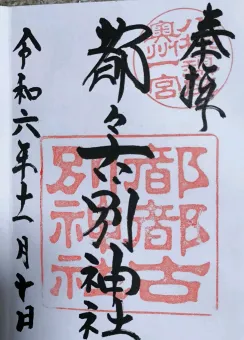 奉拝
奥州一宮
都々古別神社
都都古別神社
令和六年十一月十日